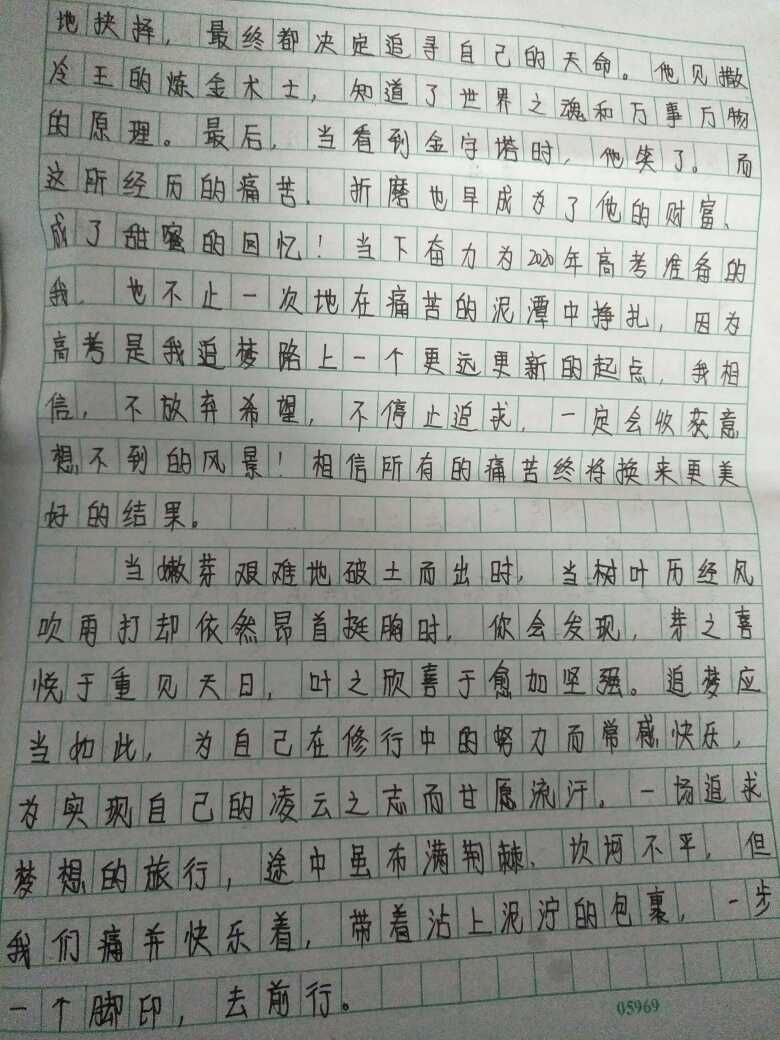 地抉择，最终都决定追寻自己的天命。他见撒
冷王的炼金术士，知道了世界之魂和万事万物
的原理。最后，当看到金字塔时，他笑了。而
这所经历的痛苦、折磨也早成为了他的财富、
成了甜蜜的回忆！当下奋力为2020年高考准备的
我，也不止一次地在痛苦的泥潭中挣扎，因为
高考是我追梦路上一个更远更新的起点，我相
信，不放弃希望，不停止追求，一定会收获意
想不到的风景！相信所有的痛苦终将换来更美
好的结果。
当嫩芽艰难地破土而出时，当树叶历经风
吹雨打却依然昂首挺胸时，你会发现，芽之喜
悦于重见天日，叶之欣喜于愈加坚强。追梦应
当如此，为自己在修行中的努力而常感快乐，
为实现自己的凌云之志而甘愿流汗。一场追求
梦想的旅行，途中虽布满荆棘、坎坷不平，但
我们痛并快乐着，带着沾上泥泞的包裹，一步
一个脚印，去前行。
05969